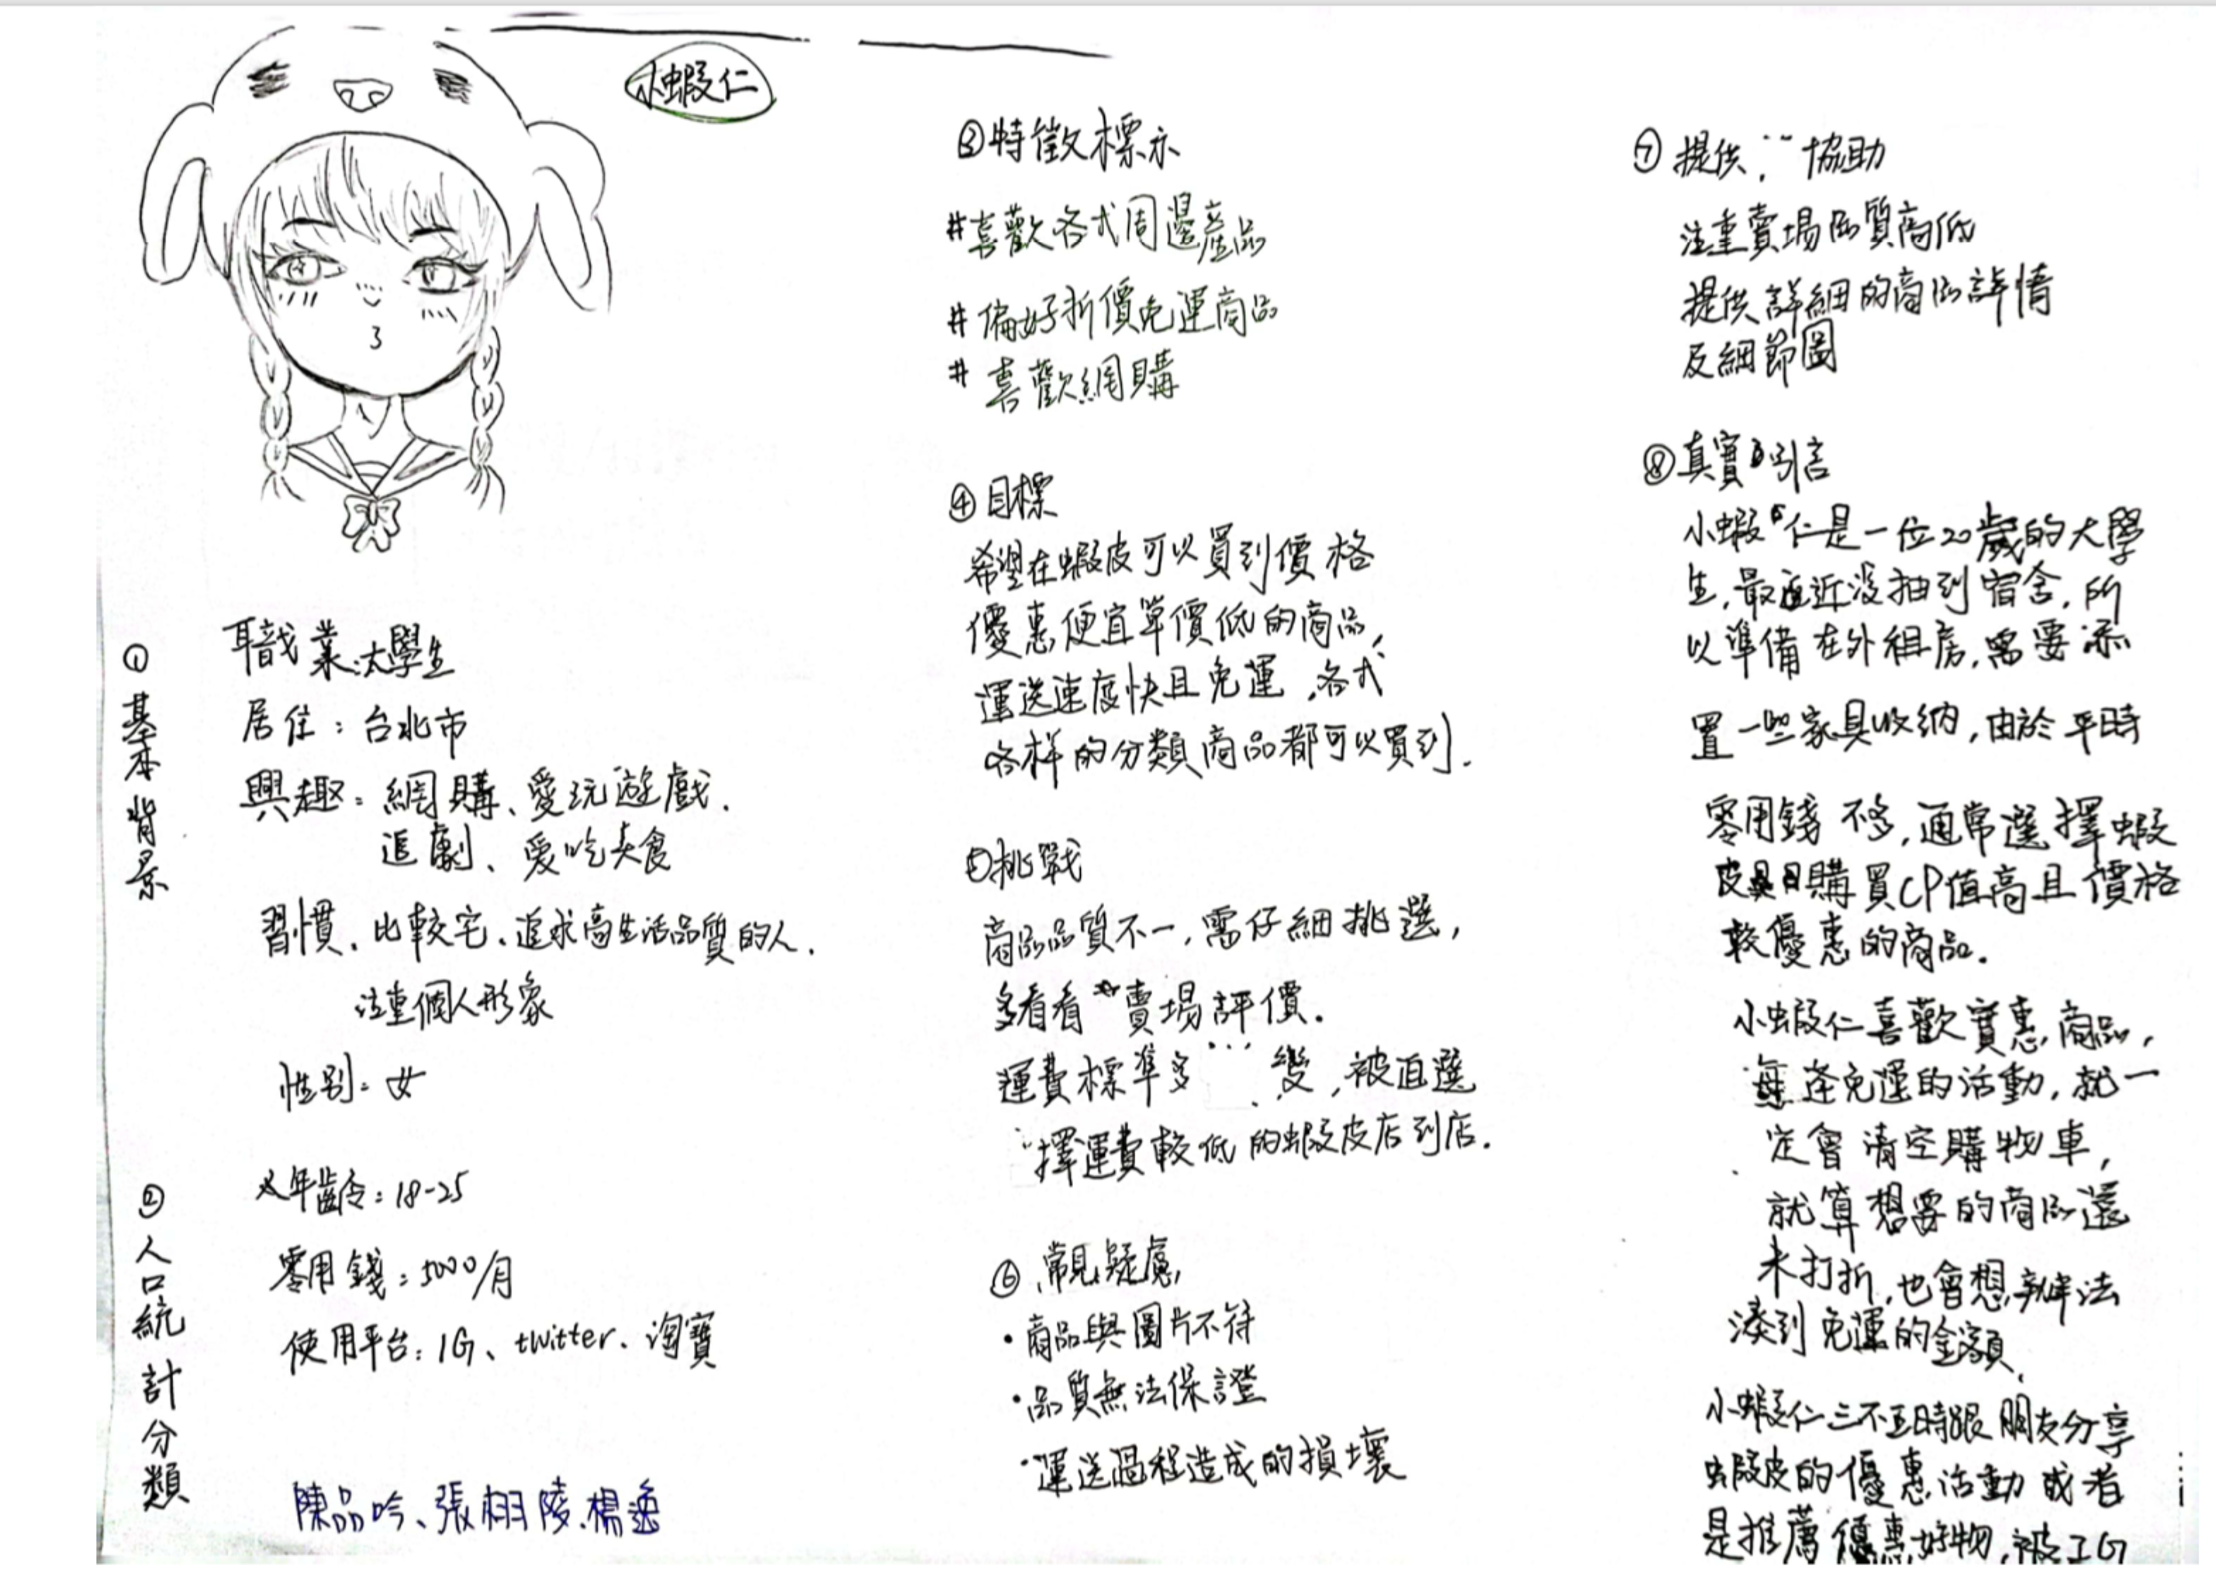 小蝦仁
①基本背景
職業:大學生
居住:台北市
興趣:網購、愛玩遊戲、
追劇、愛吃美食
習慣、比較宅、追求高生活品質的人.
注重個人形象
性別:女
②人口統計分類
年齡:18-25
零用錢:5000/月
使用平台:IG、twitter、淘寶
陳品吟、張栩陵、楊逸
③特徵標示
#喜歡各式周邊產品
#偏好折價免運商品
#喜歡網購
④目標
希望在蝦皮可以買到價格
優惠便宜單價低的商品,
運送速度快且免運,各式
各样的分類商品都可以買到.
⑤挑戰
商品品質不一,需仔細挑選,
多看看賣場評價.
運費標準多變,被迫選
擇運費較低的蝦皮店到店.
⑥常見疑慮
•商品與圖片不符
•品質無法保證
•運送過程造成的損壞
⑦提供協助
注重賣場品質高低
提供詳細的商品詳情
及細節圖
⑧真實引言
小蝦仁是一位20歲的大學
生,最近沒抽到宿舍,所
以準備在外租房,需要添
置一些家具收納,由於平時
零用錢不多,通常選擇蝦
皮購買CP值高且價格
較優惠的商品.
小蝦仁喜歡實惠商品,
每逢免運的活動,就一
定會清空購物車,
就算想要的商品還
未打折,也會想辦法
湊到免運的金額.
小蝦仁三不五時跟朋友分享
蝦皮的優惠活動或者
是推薦優惠好物,被IG